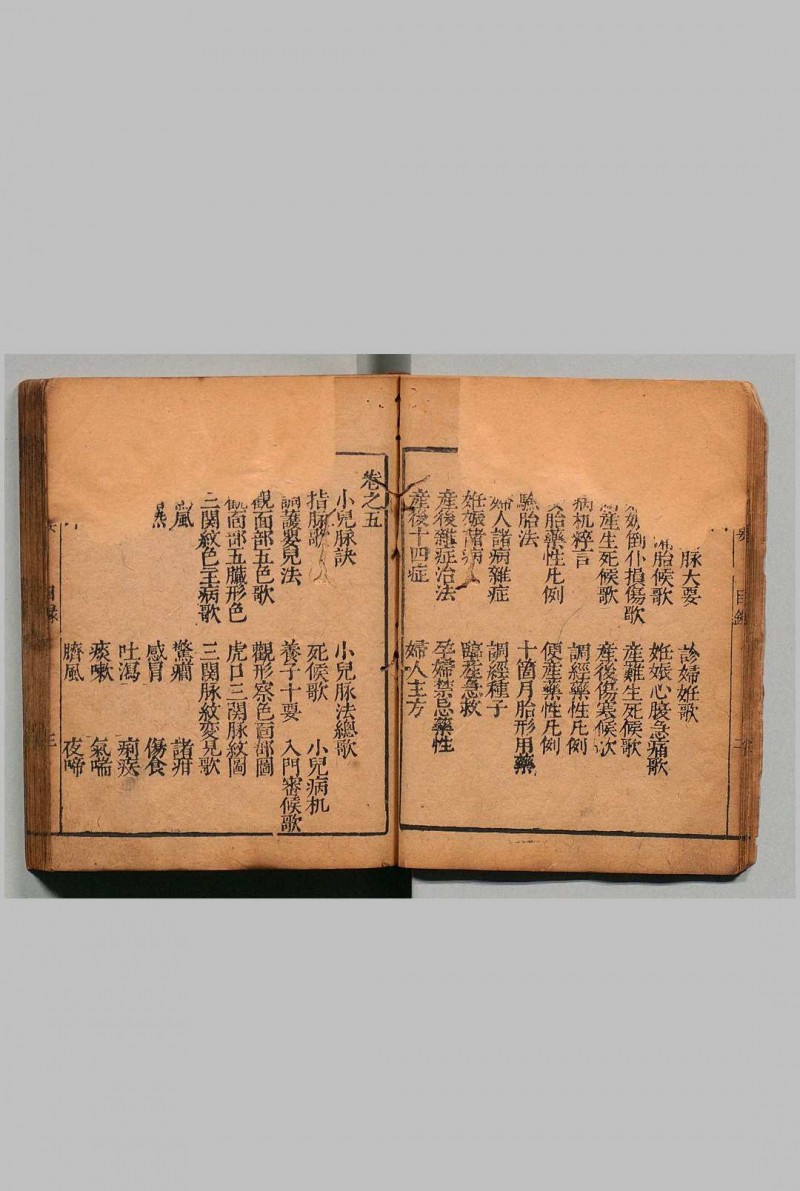 脉大要　診婦妊歌
胎候歌　妊娠心腹急痛歌
倒仆損傷歌　産難生死候歌
産生死候歌　産後傷寒候歌
病机粹言　調經藥性凡例
胎藥性凡例　便産藥性凡例
驗胎法　十箇月胎形用藥
婦人諸病雜症　調經種子
妊娠諸病　臨産急救
産後雜症治法　孕婦禁忌藥性
産後十四症　婦人主方
卷之五
小兒脉訣　小兒脉法總歌
指脉歌　死候歌　小兒病机
調護嬰兒法　養子十要　入門審候歌
觀面部五色歌　觀形察色面部圖
觀面部五臟形色　虎口三関脉紋圖
三関紋色主病歌　三関脉紋変見歌
風　驚癇　諸疳
感冒　傷食
吐瀉　痢疾
痰嗽　氣喘
臍風　夜啼
目録　三